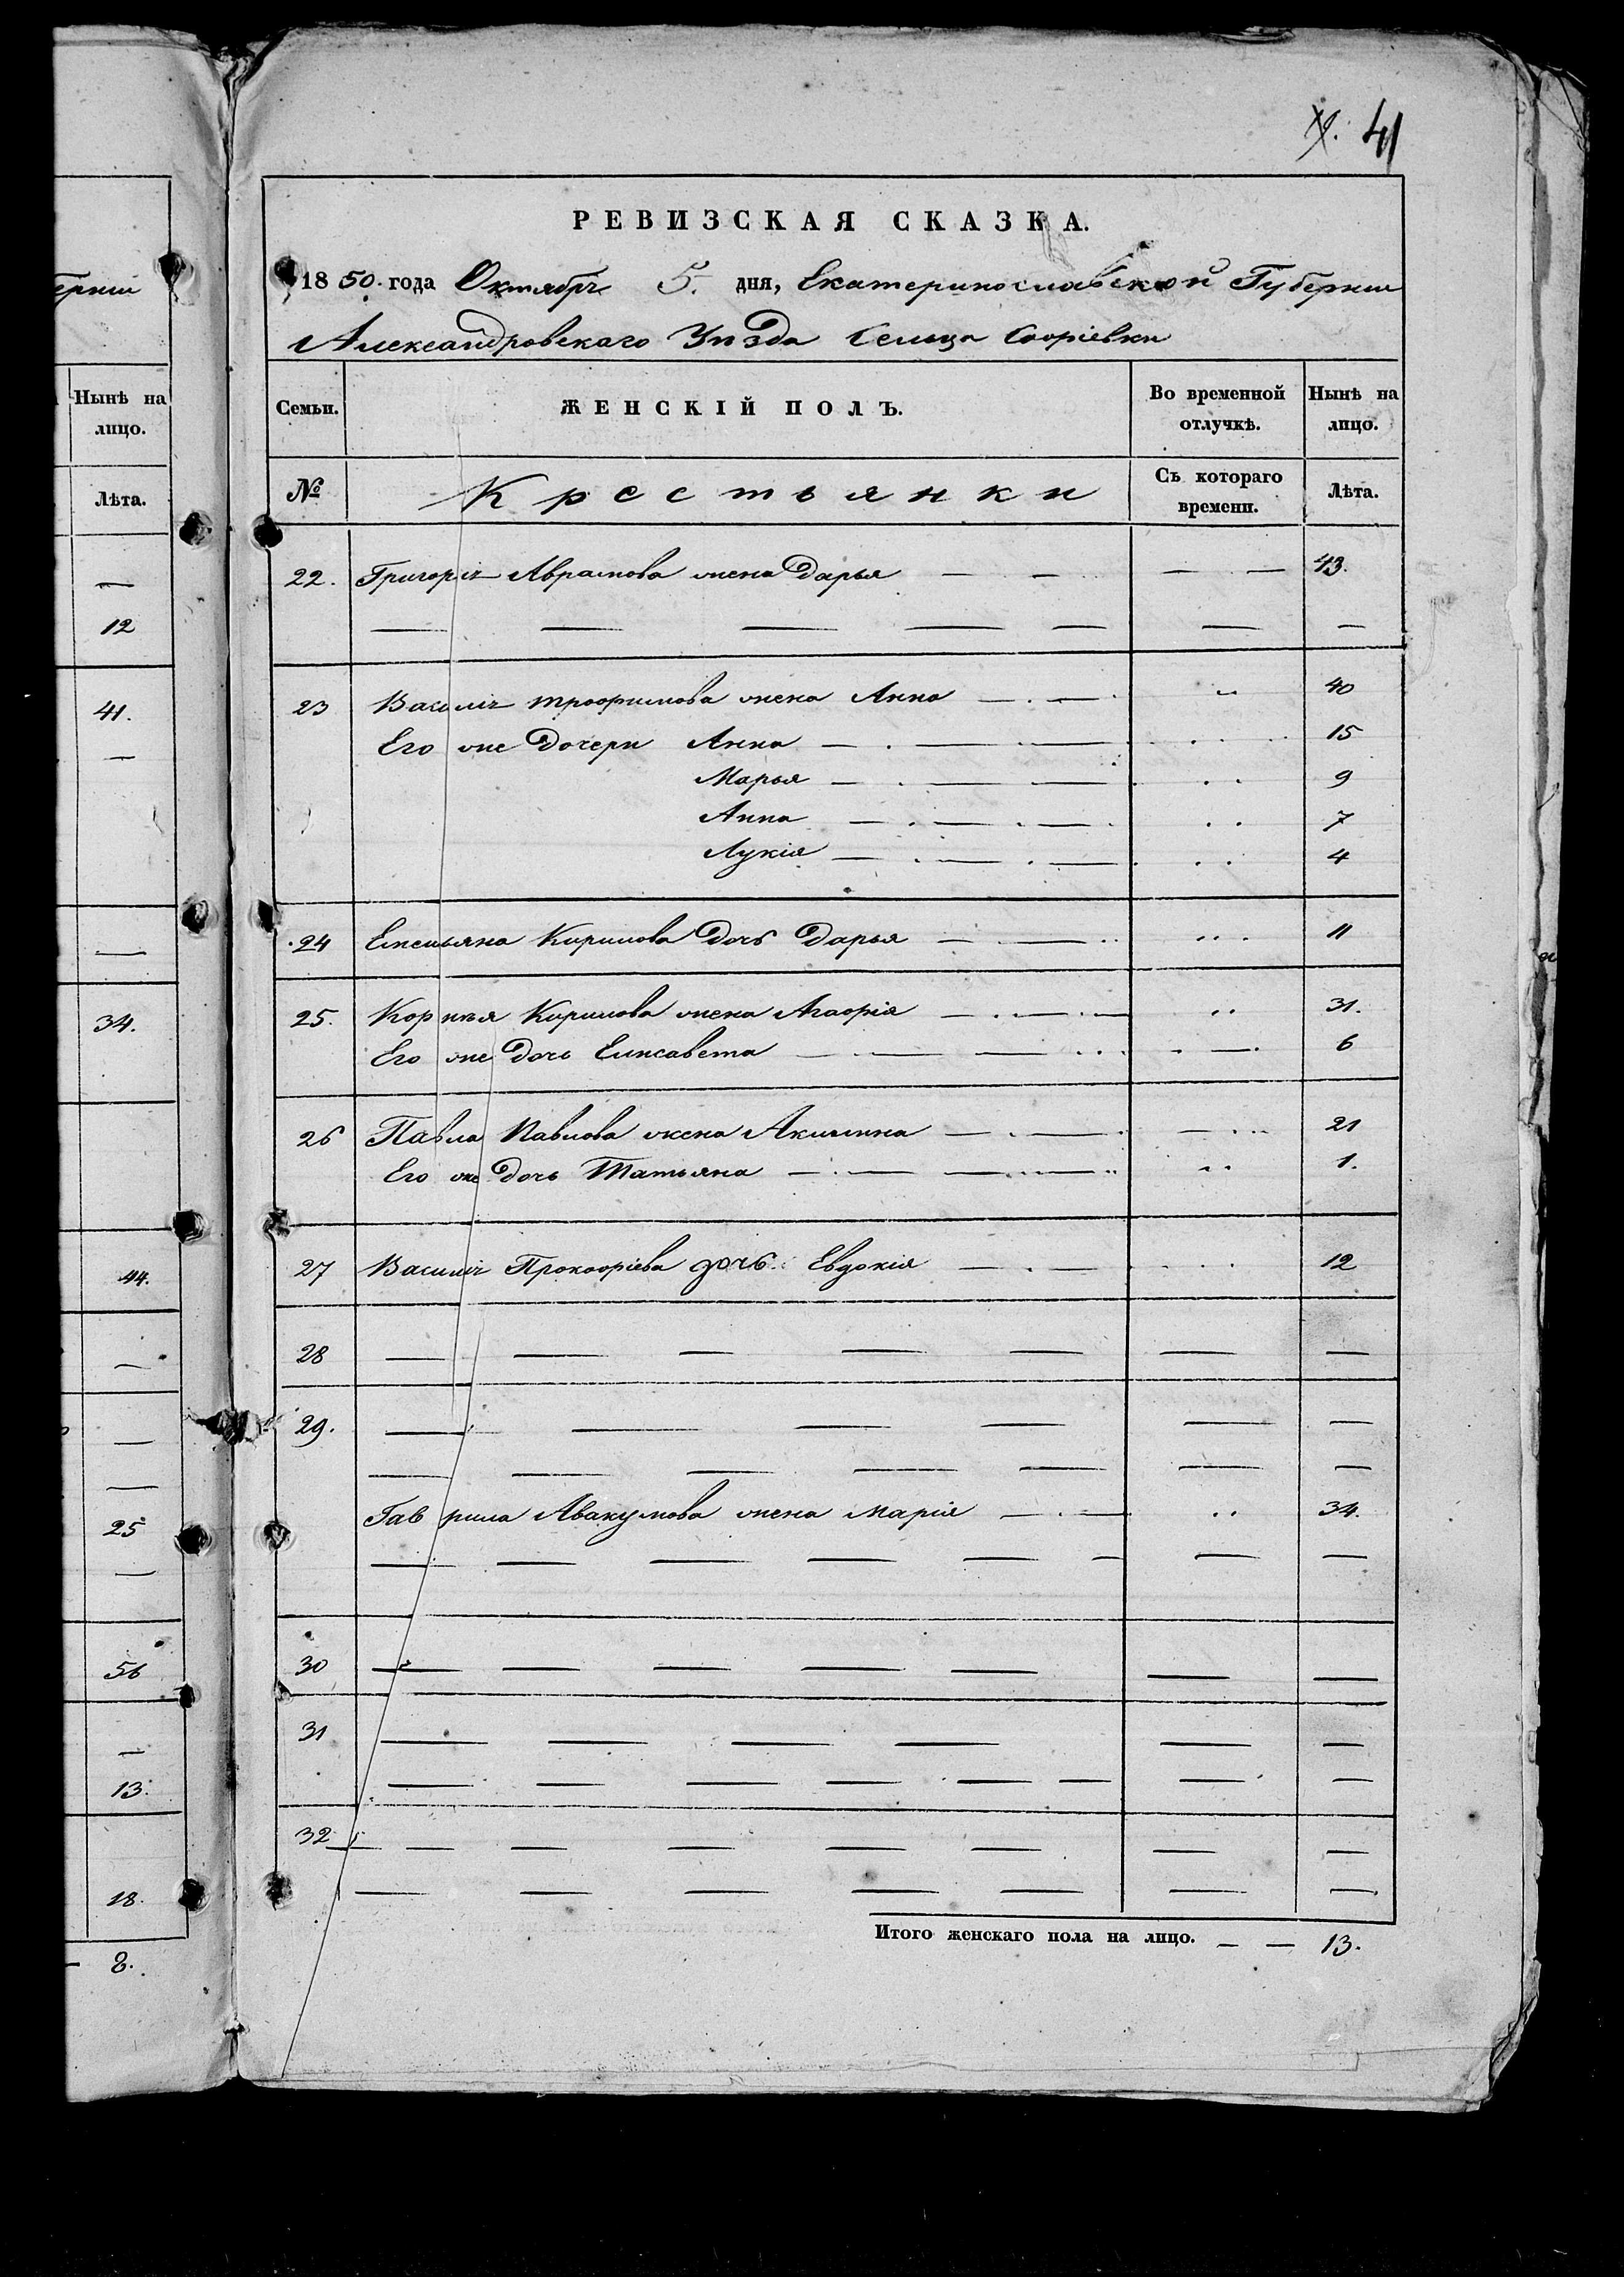 41
РЕВИЗСКАЯ СКАЗКА.
1850. года Октября 5. дня, Екатеринославской Губернии
Александровскаго Уѣзда Сельца Софіевки
Семьи. ЖЕНСКІЙ ПОЛЪ. Во временной отлучкѣ. Нынѣ на лицо.
№ Крестьянки Съ котораго времени. Лѣта.
22. Григорія Аврамова жена Дарья — — — — 43.
— — — — — — —
23 Василія трофимова жена Анна — . — . „ 40
Его же Дочери Анна — . — . — . . . 15
Марья — . — — . . . 9
Анна — . — . — . . . 7
Лукія — . — . — . . . 4
24 Емельяна Кирилова Дочь Дарья — . — . . . . . 11
25. Корнея Кирилова жена Агафія — . — . — . . 31.
Его же Дочь Елисавета — . — — . . . . — . 6
26 Павла Павлова жена Акилина — . — . — . . . 21
Его же Дочь Татьяна — . — — . — . . . . 1.
27 Василія Прокофіева дочь Евдокія — . — . . . . 12
28 — — — — — — —
29. — — — — — —
— — — — — — —
Гаврила Авакумова жена Марія — . — . . 34.
— — — — — — — —
30 — — — — — — —
31 — — — — — —
— — — — — — — —
32 — — — — — — —
— — — — — — —
Итого женскаго пола на лицо. — — 13.
ерніи
Нынѣ на
лицо.
Лѣта.
—
12
41.
—
—
34.
44.
—
—
—
25
—
56
—
13.
18.
— 8.